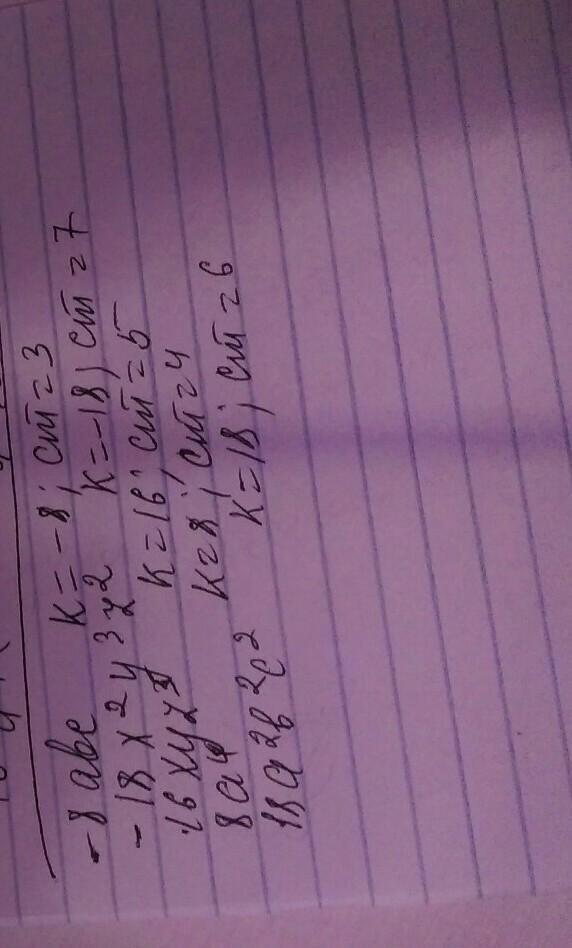 -8abc K=-8; ст=3
-18x²y³z² K=-18; ст=7
16xyz³ K=16; ст=5
8a⁴ K=8; ст=4
18a²b²c² K=18; ст=6